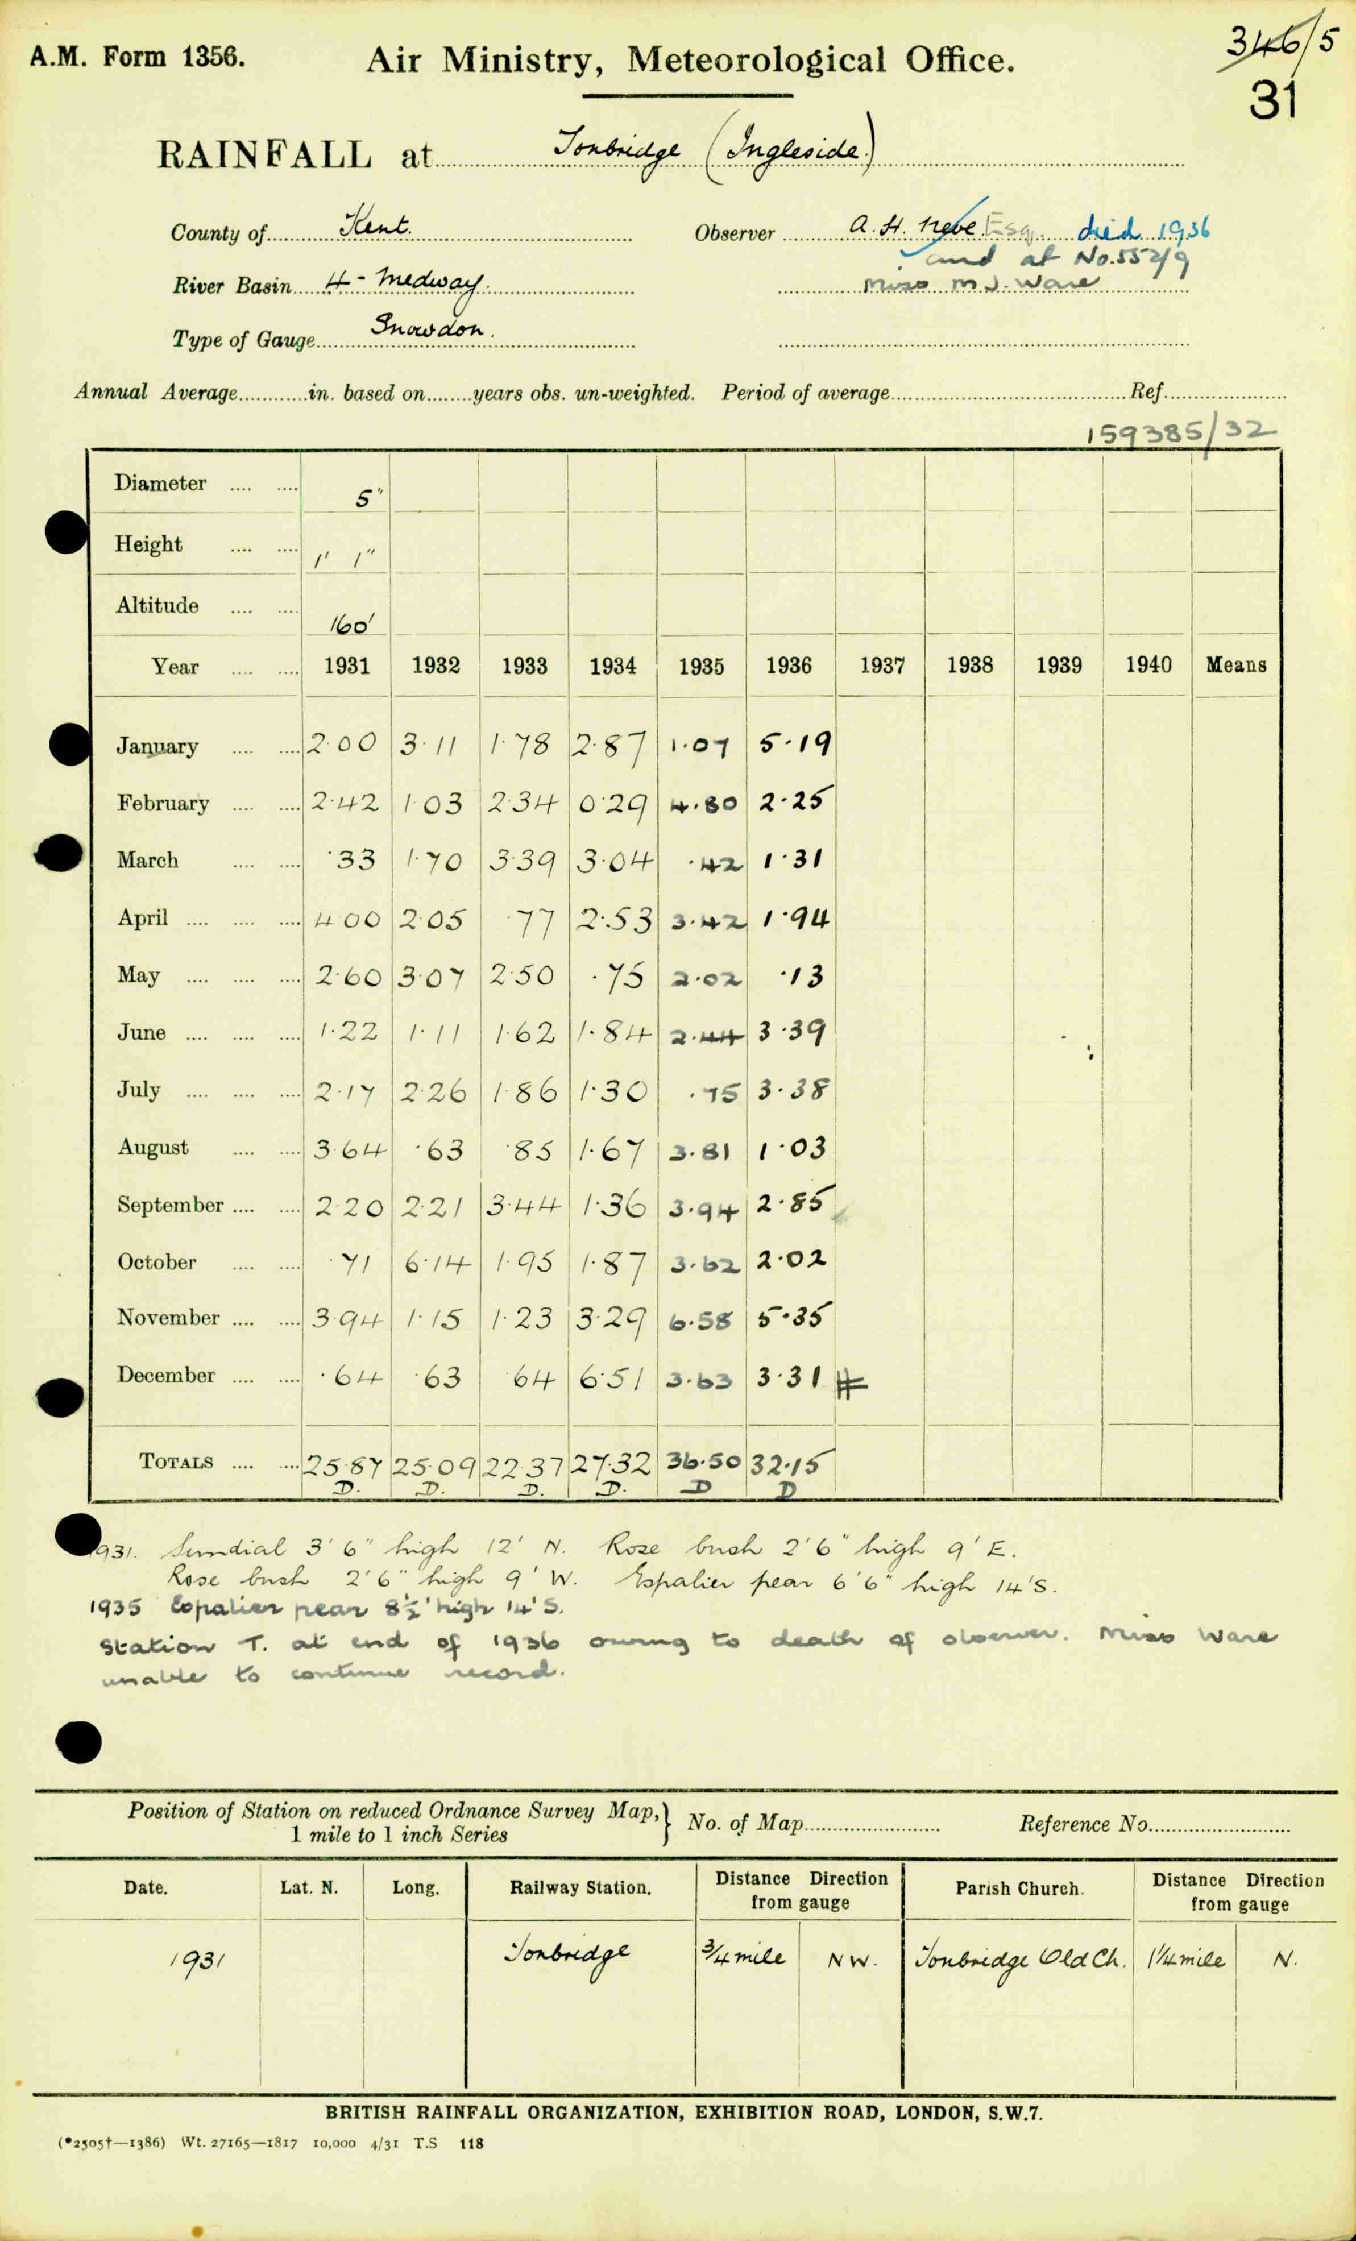 A.M. Form 1356.
Air Ministry, Meteorological Office.
346/5
31
RAINFALL at Tonbridge (Ingleside)
County of Kent. Observer A. H. Neve Esq. died 1936
and at No. 552/9
River Basin 4 - Medway. Miss M J. Ware
Type of Gauge Snowdon.
Annual Average in. based on years obs. un-weighted. Period of average Ref.
159385/32
Diameter 5"
Height 1' 1"
Altitude 160'
Year 1931 1932 1933 1934 1935 1936 1937 1938 1939 1940 Means
January 2.00 3.11 1.78 2.87 1.07 5.19
February 2.42 1.03 2.34 0.29 4.80 2.25
March .33 1.70 3.39 3.04 .42 1.31
April 4.00 2.05 .77 2.53 3.42 1.94
May 2.60 3.07 2.50 .75 2.02 .13
June 1.22 1.11 1.62 1.84 2.44 3.39
July 2.17 2.26 1.86 1.30 .75 3.38
August 3.64 .63 .85 1.67 3.81 1.03
September 2.20 2.21 3.44 1.36 3.94 2.85
October .71 6.14 1.95 1.87 3.62 2.02
November 3.94 1.15 1.23 3.29 6.58 5.35
December .64 .63 .64 6.51 3.63 3.31
TOTALS 25.87 25.09 22.37 27.32 36.50 32.15
D. D. D. D. D D
1931. Sundial 3' 6" high 12' N. Rose bush 2' 6" high 9' E.
Rose bush 2' 6" high 9' W. Espalier pear 6' 6" high 14' S.
1935 Espalier pear 8½' high 14' S.
Station T. at end of 1936 owing to death of observer. Miss Ware
unable to continue record.
Position of Station on reduced Ordnance Survey Map, 1 mile to 1 inch Series } No. of Map Reference No.
Date. Lat. N. Long. Railway Station. Distance from gauge Direction Parish Church. Distance from gauge Direction
1931 Tonbridge 3/4 mile NW. Tonbridge Old Ch. 1 1/4 mile N.
BRITISH RAINFALL ORGANIZATION, EXHIBITION ROAD, LONDON, S.W.7.
(*2505†—1386) Wt. 27165—1817 10,000 4/31 T.S 118